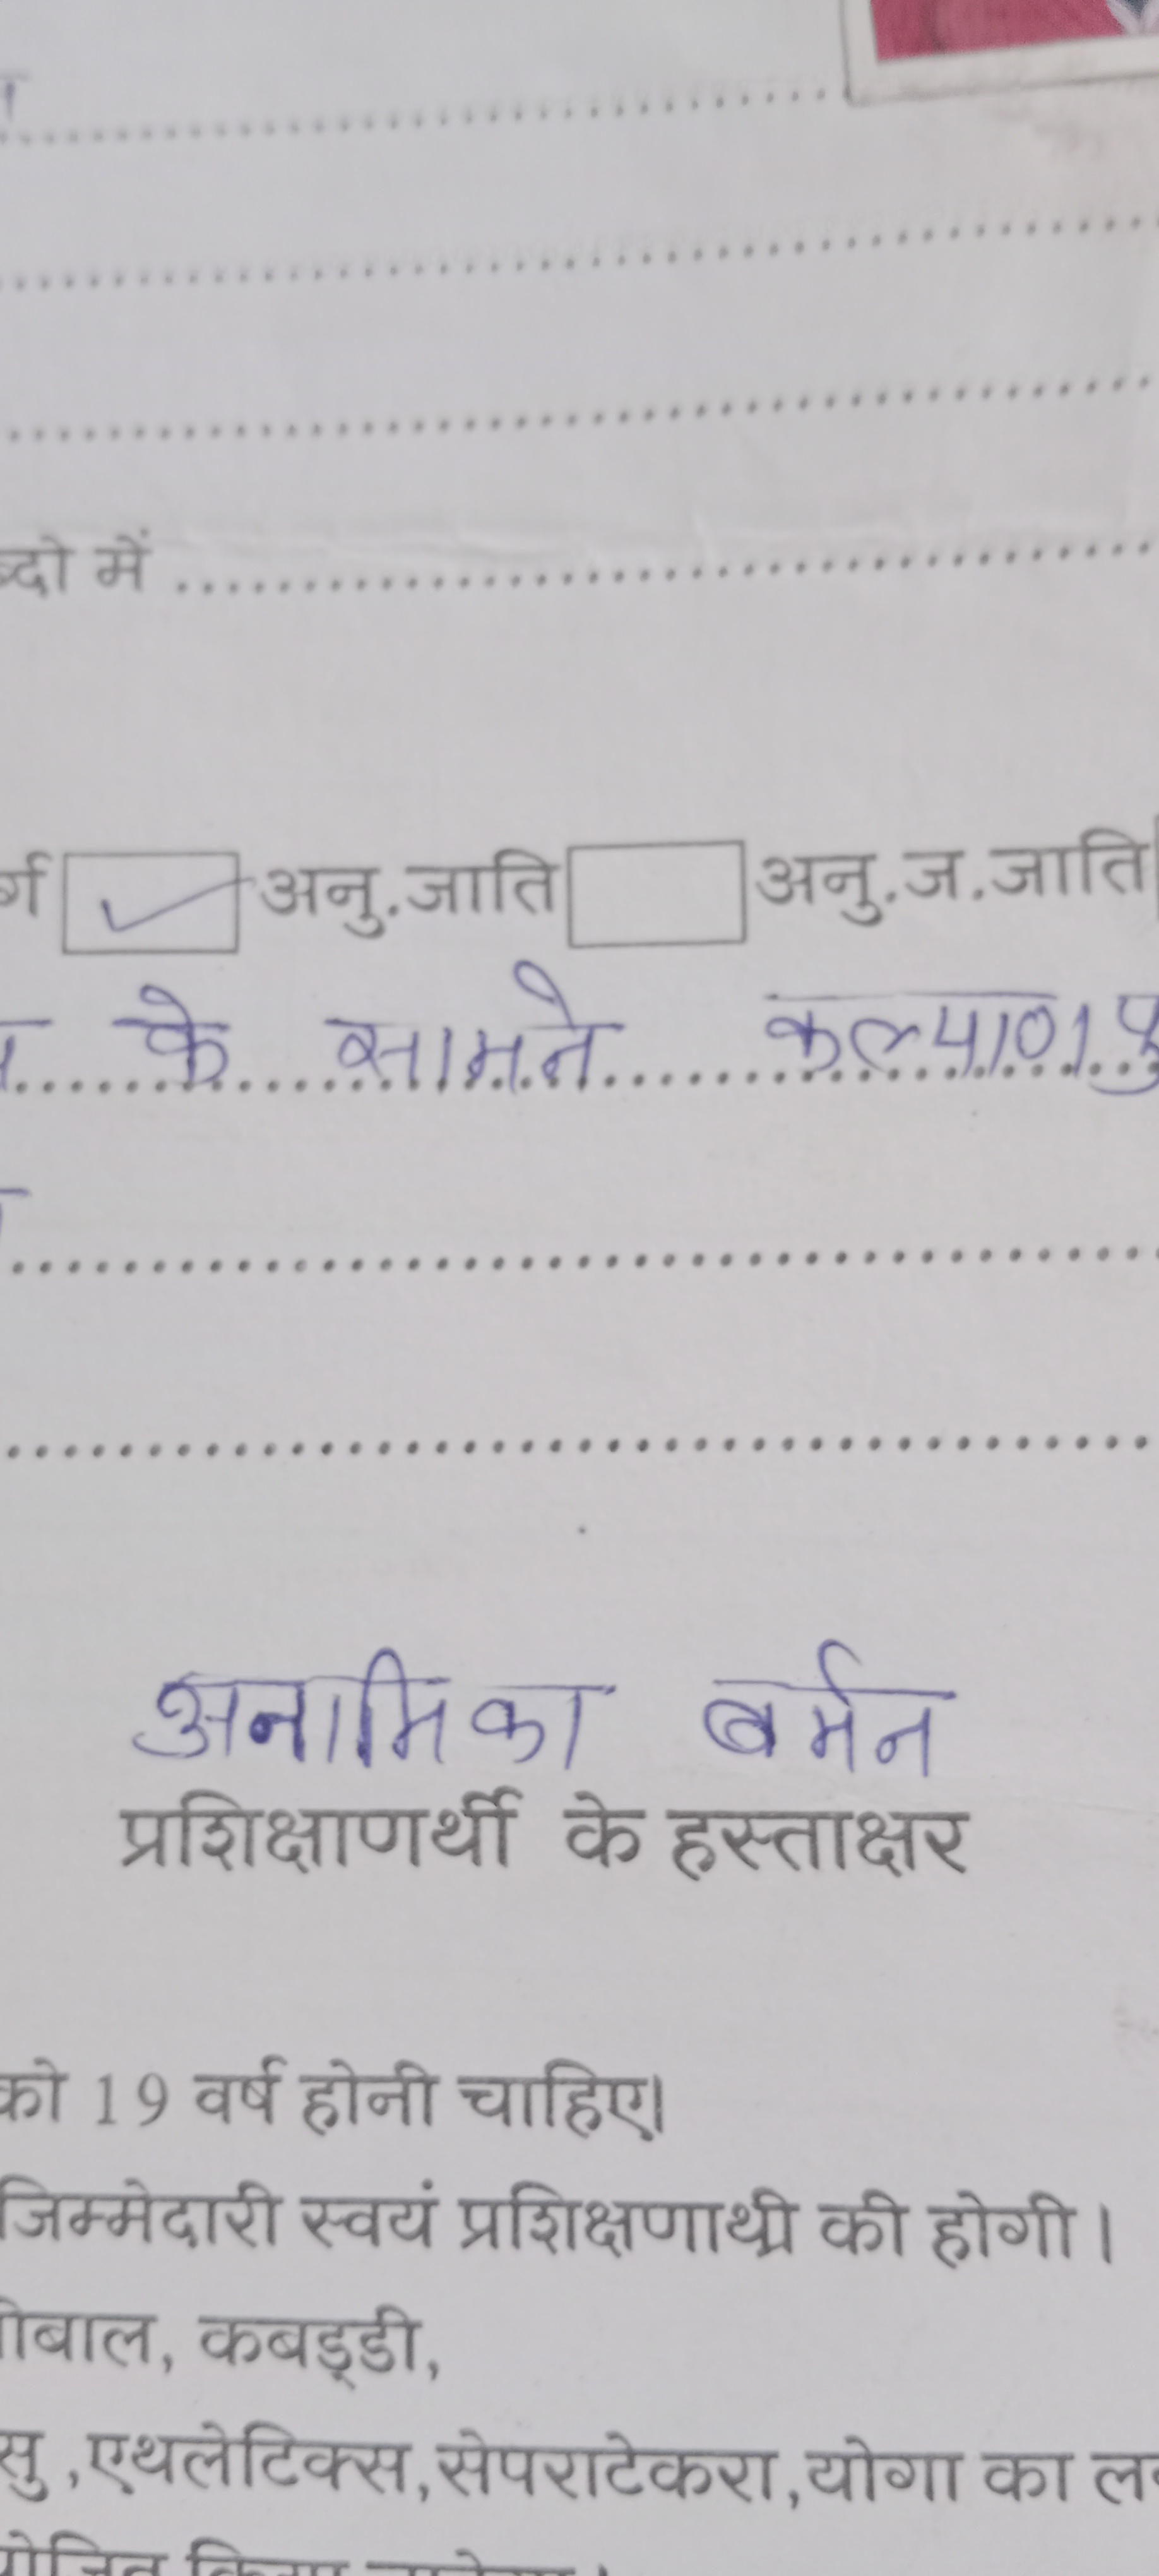 में
अनु.जाति अनु.ज.जाति
के सामने कल्याण
अनामिका बर्मन
प्रशिक्षाणर्थी के हस्ताक्षर
को 19 वर्ष होनी चाहिए।
जिम्मेदारी स्वयं प्रशिक्षणाथी की होगी।
कबड्डी,
,एथलेटिक्स,सेपराटेकरा,योगा का